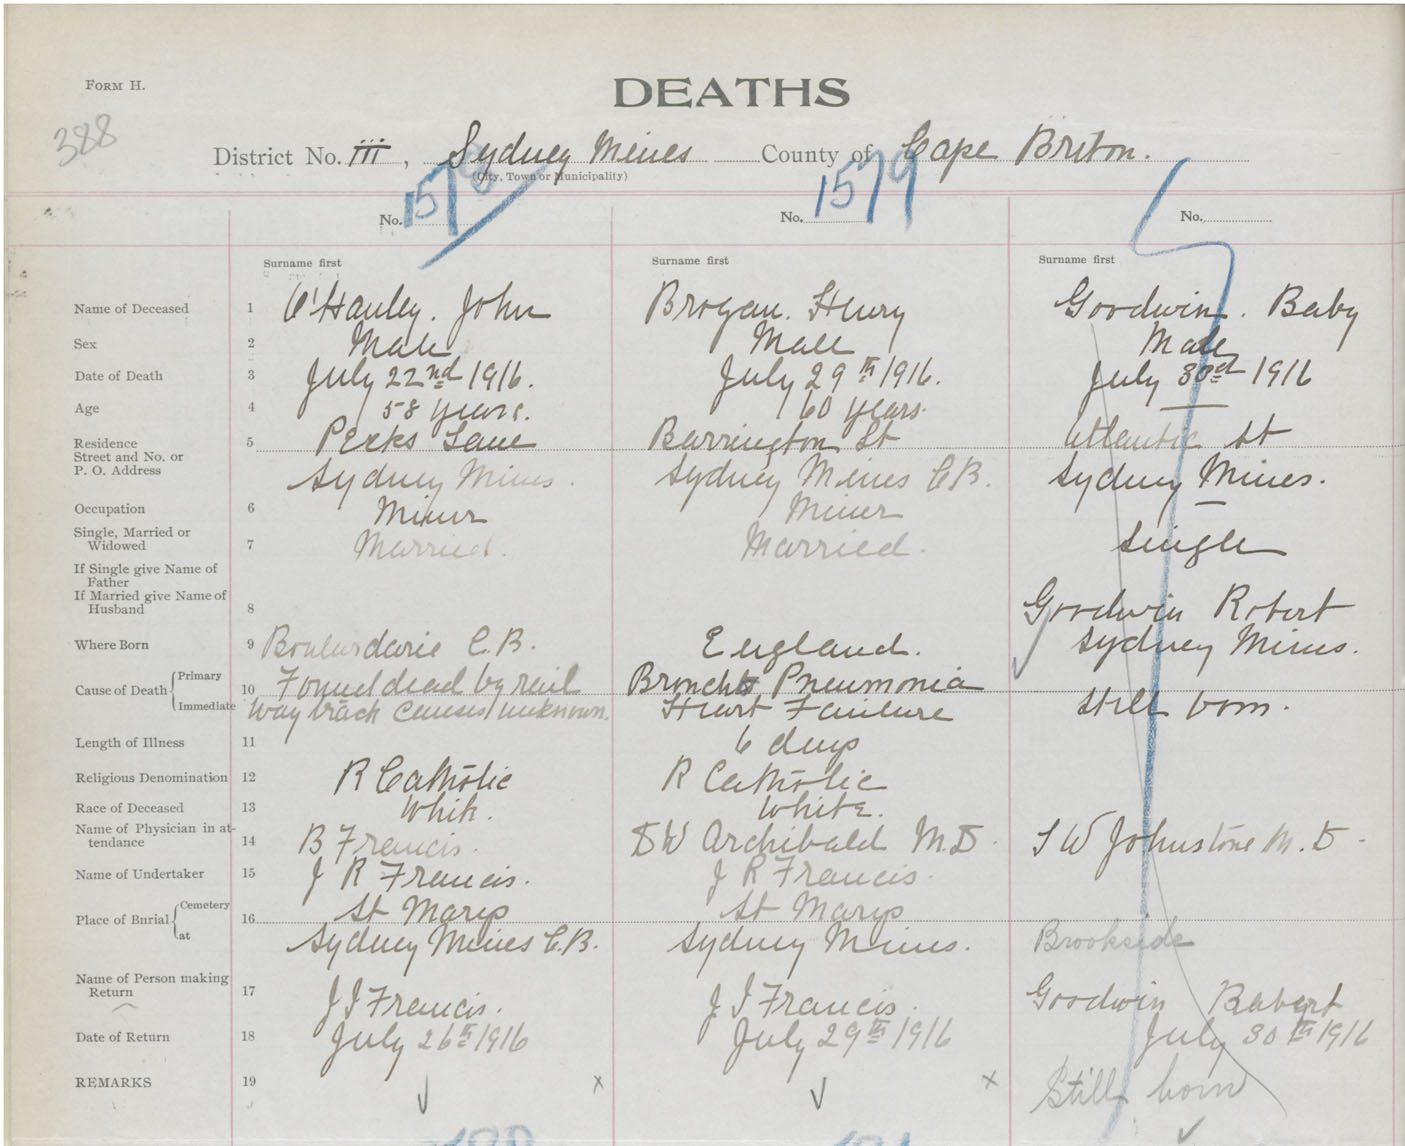 FORM H.
DEATHS
388
District No. III, Sydney Mines County of Cape Breton.
(City, Town or Municipality)
No. 1578 No. 1579 No.
Surname first Surname first Surname first
Name of Deceased 1 O'Hanley. John Brogan. Henry Goodwin. Baby
Sex 2 Male Male Male
Date of Death 3 July 22nd 1916. July 29th 1916. July 30 1916
Age 4 58 years. 60 years. —
Residence 5 Peeks Lane Barrington St Atlantic St
Street and No. or
P. O. Address Sydney Mines. Sydney Mines C.B. Sydney Mines.
Occupation 6 Miner Miner —
Single, Married or
Widowed 7 Married. Married. Single
If Single give Name of
Father
If Married give Name of
Husband 8 Goodwin Robert
Where Born 9 Boulardarie C.B. England. Sydney Mines.
Cause of Death { Primary 10 Found dead by rail Broncho Pneumonia
Immediate way track causes unknown. Heart Failure Still born.
Length of Illness 11 6 days
Religious Denomination 12 R Catholic R Catholic
Race of Deceased 13 White. White.
Name of Physician in at-
tendance 14 B Francis. D W Archibald M.D. S W Johnstone M.D.
Name of Undertaker 15 J R Francis. J R Francis.
Place of Burial { Cemetery 16 St Marys St Marys
at Sydney Mines C.B. Sydney Mines. Brookside
Name of Person making
Return 17 J J Francis. J J Francis. Goodwin Robert
Date of Return 18 July 26th 1916 July 29th 1916 July 30th 1916
REMARKS 19 Still born